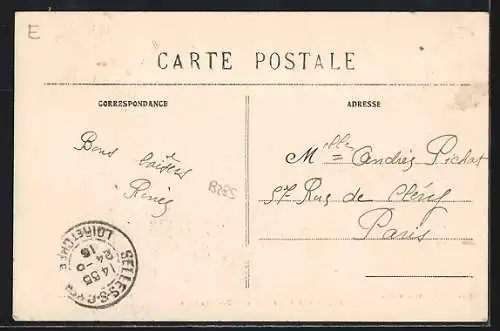 E
CARTE POSTALE
CORRESPONDANCE
ADRESSE
Bons baisers
Renée
B285
Melle Andrée Pichot
57 Rue de Cléry
Paris
SELLES-S-CHER
14 55
24 -5
16
LOIR ET CHER